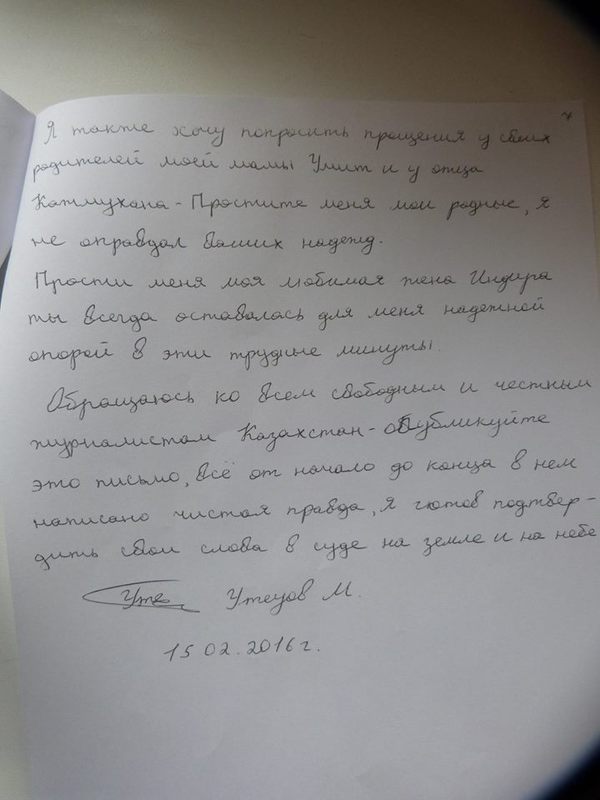 7
Я также хочу попросить прощения у своих
родителей моей мамы Умит и у отца
Катмухана - Простите меня мои родные, я
не оправдал ваших надежд.
Прости меня моя любимая жена Индира
ты всегда оставалась для меня надежной
опорой в эти трудные минуты.
Обращаюсь ко всем свободным и честным
журналистам Казахстан - опубликуйте
это письмо, всё от начало до конца в нем
написано чистая правда, я готов подтвер-
дить свои слова в суде на земле и на небе
Уте Утеуов М.
15.02.2016г.